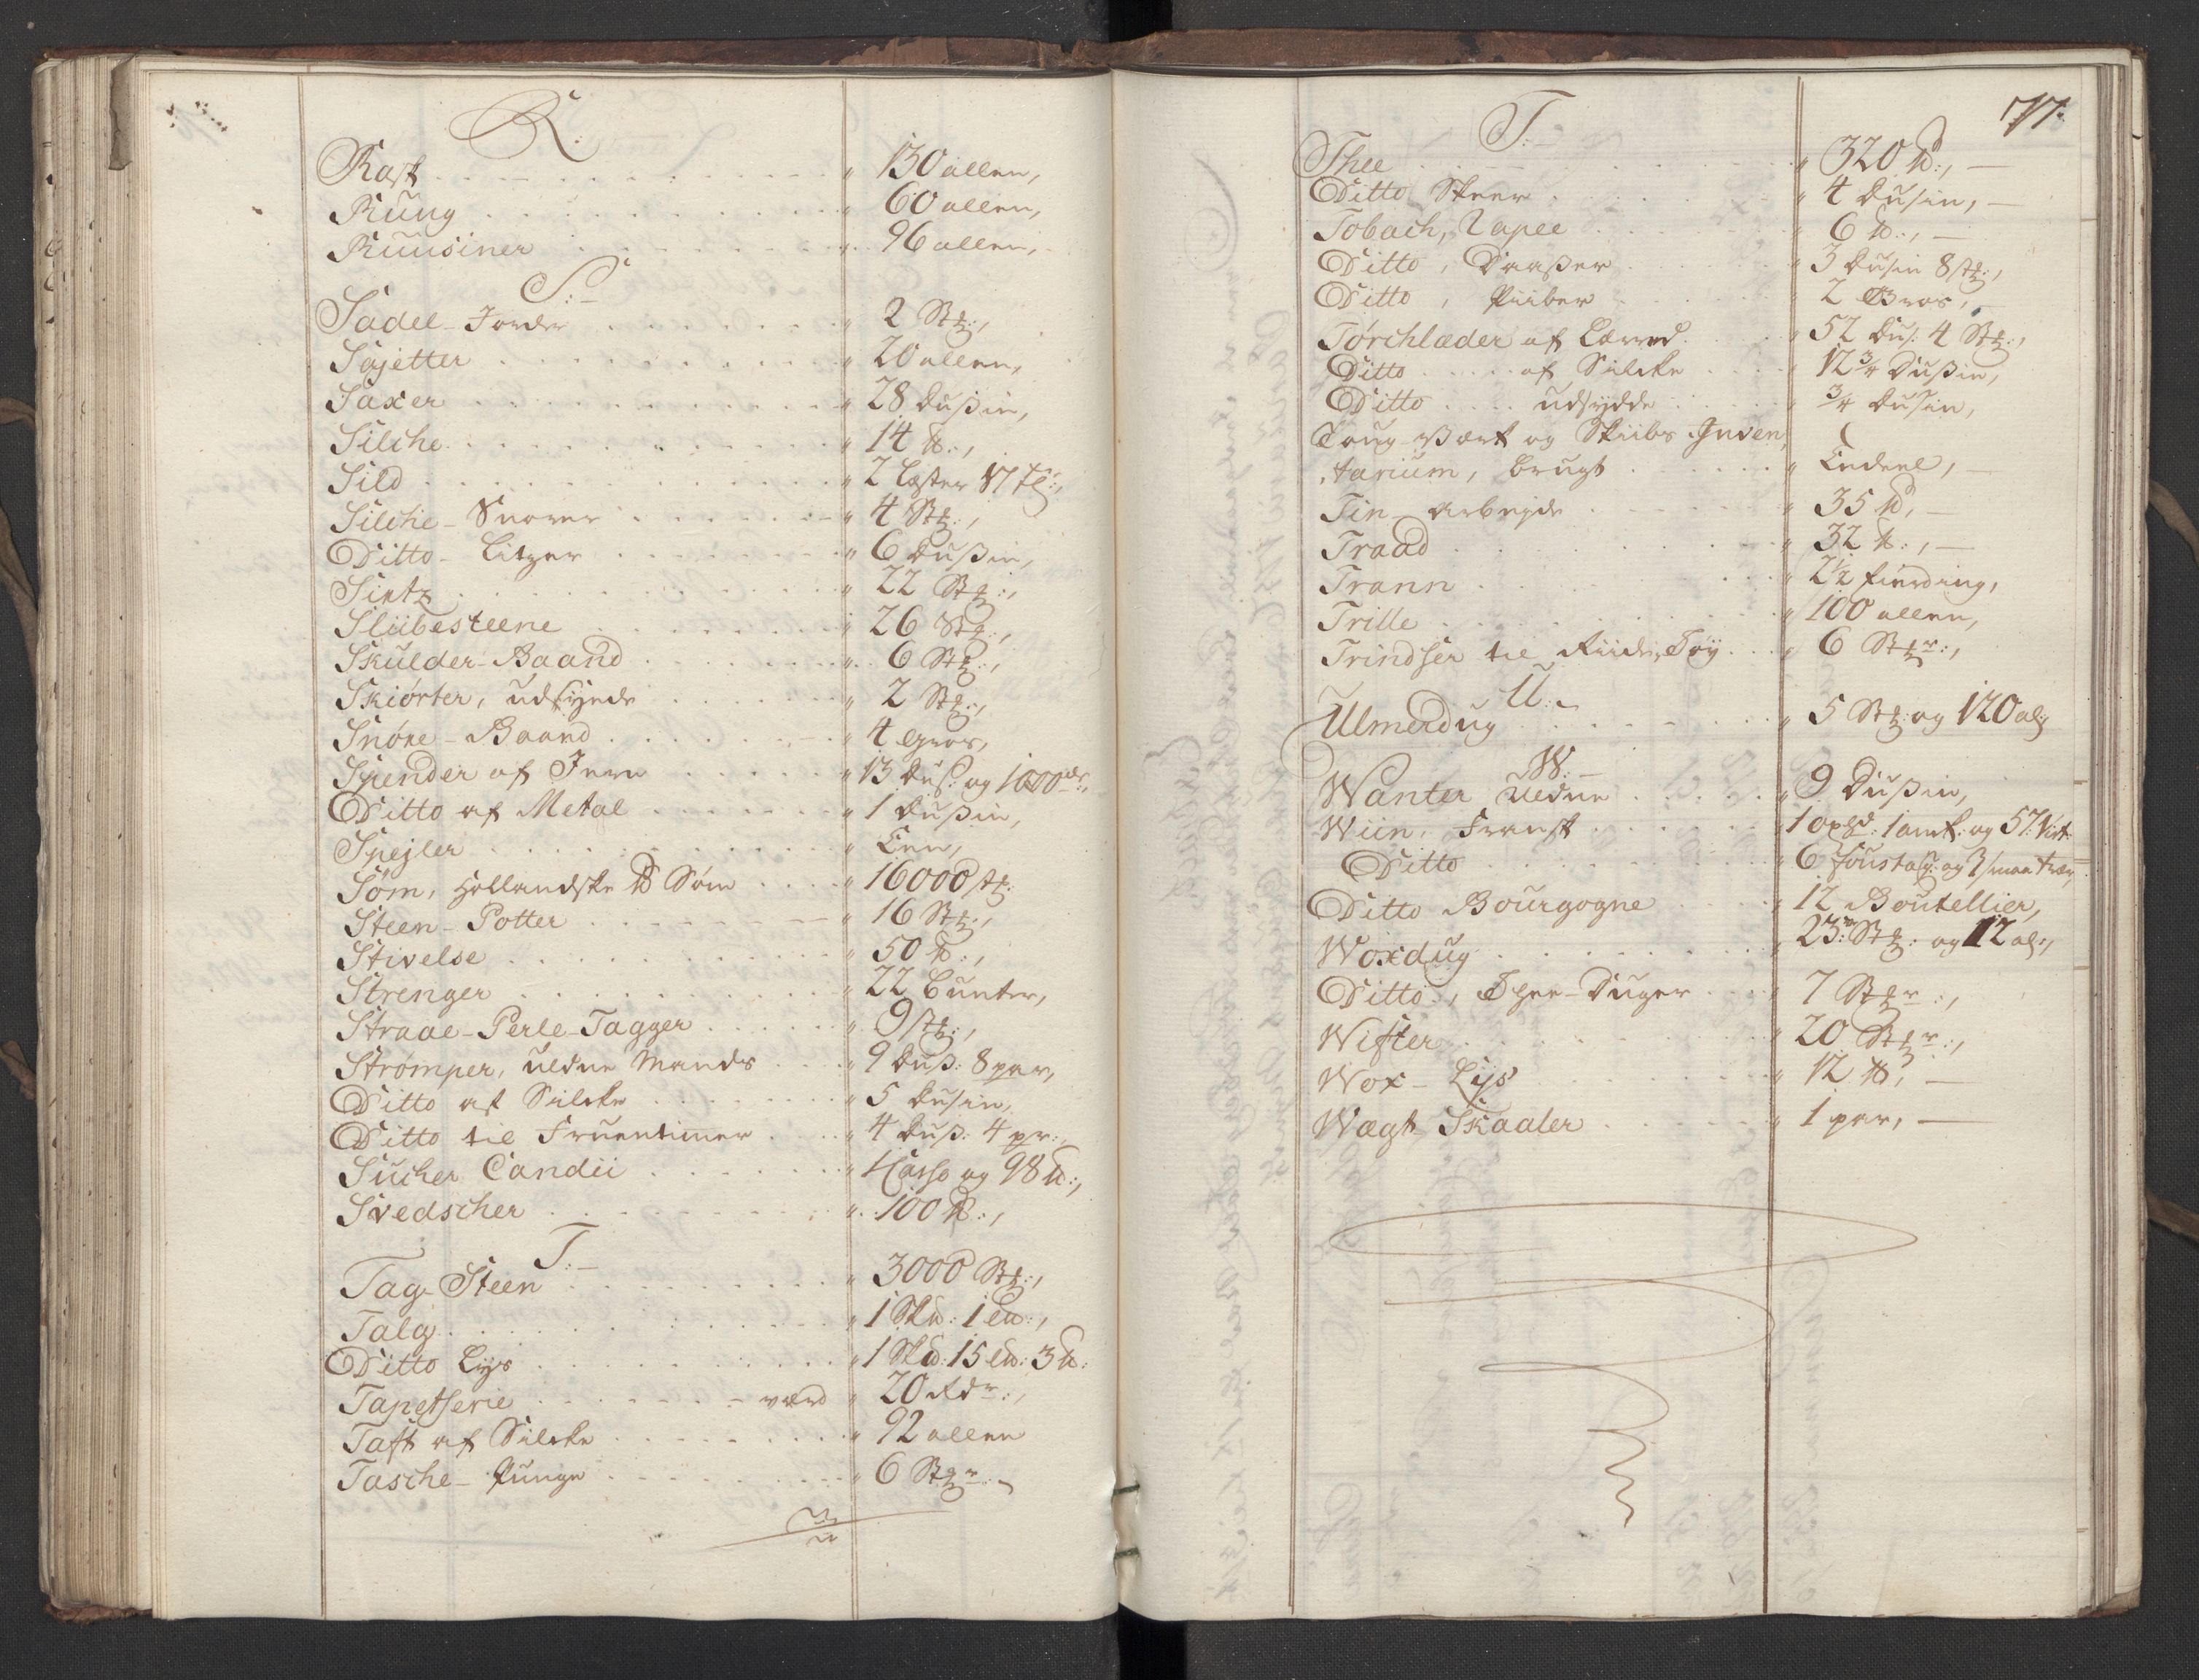 R.
Rask " 130 allen,
Rung " 60 allen,
Ruusiner " 96 allen,
S.
Sadel-Jorder " 2 Stk:,
Sajetter " 20 allen,
Saxer " 28 Dußin,
Silche " 14 ℔:,
Sild " 2 Læster 17 tr:,
Silche-Snorer " 4 Stk:,
Ditto-Litzer " 6 Dußin,
Sirtz " 22 Stk:,
Sliibesteene " 26 Stk:,
Skulder-Baand " 6 Stk:,
Skiørter, udsyede " 2 Stk:,
Snøre-Baand " 4 Gros,
Spender af Jern " 13 Duß: og 1000
Ditto af Metal " 1 Dußin,
Spejler " Een,
Søm, Hollandske ℔ Søm " 16000 stk:
Steen-Potter " 16 Stk:,
Stivelse " 50 ℔:,
Strenger " 22 Bunter,
Straae-Perle-Tagger " 9 stk:,
Strømper, uldne Mands " 9 Duß: 8 par,
Ditto af Silcke " 5 Dusin,
Ditto til Fruentimer " 4 Duß: 4 pr:,
Sucker Candii " 1 Casse og 98 ℔:,
Svedscher " 100 ℔:,
T.
Tag-Steen " 3000 Stk:,
Talg " 1 Sk℔: 1 L℔:,
Ditto Lys " 1 Sk℔: 15 L℔: 3 ℔:
Tapetserie værd " 20 Rdr:,
Taft af Silcke " 92 allen
Tasche-Punge " 6 Stkr:
77.
T.
Thee " 320 ℔:,
Ditto Skeer " 4 Dusin,
Tobach, Rapee " 6 ℔:,
Ditto, Daaßer " 3 Dusin 8 stk:,
Ditto, Piiber " 2 Gros,
Tørchlæder af Lærred " 52 Dus: 4 Stk:,
Ditto af Silcke " 12 3/4 Dußin,
Ditto udsydde " 3/4 Dusin,
Toug-Værk og Skiibs Inven,
,tarium, brugt " Endeel,
Tin-Arbejde " 35 ℔,
Traad " 32 ℔:,
Trann " 2 1/2 fierding,
Trille " 100 allen,
Trindser til Riide-Tøy " 6 Stkr:,
U.
Ulmerdug " 5 Stk: og 120 al:
W.
Wanter uldne " 9 Dußin,
Wiin, Fransk " 1 oxhd: 1 ank: og 57 Virt:
Ditto " 6 foustag: og 3 smaa Træer
Ditto Bourgogne " 12 Boutellier,
Woxdug " 23 Stk: og 12 al:,
Ditto, Thee-Duger " 7 Stkr:,
Wifter " 20 Stkr:,
Wox-Lys " 12 ℔,
Wægt Skaaler " 1 par,